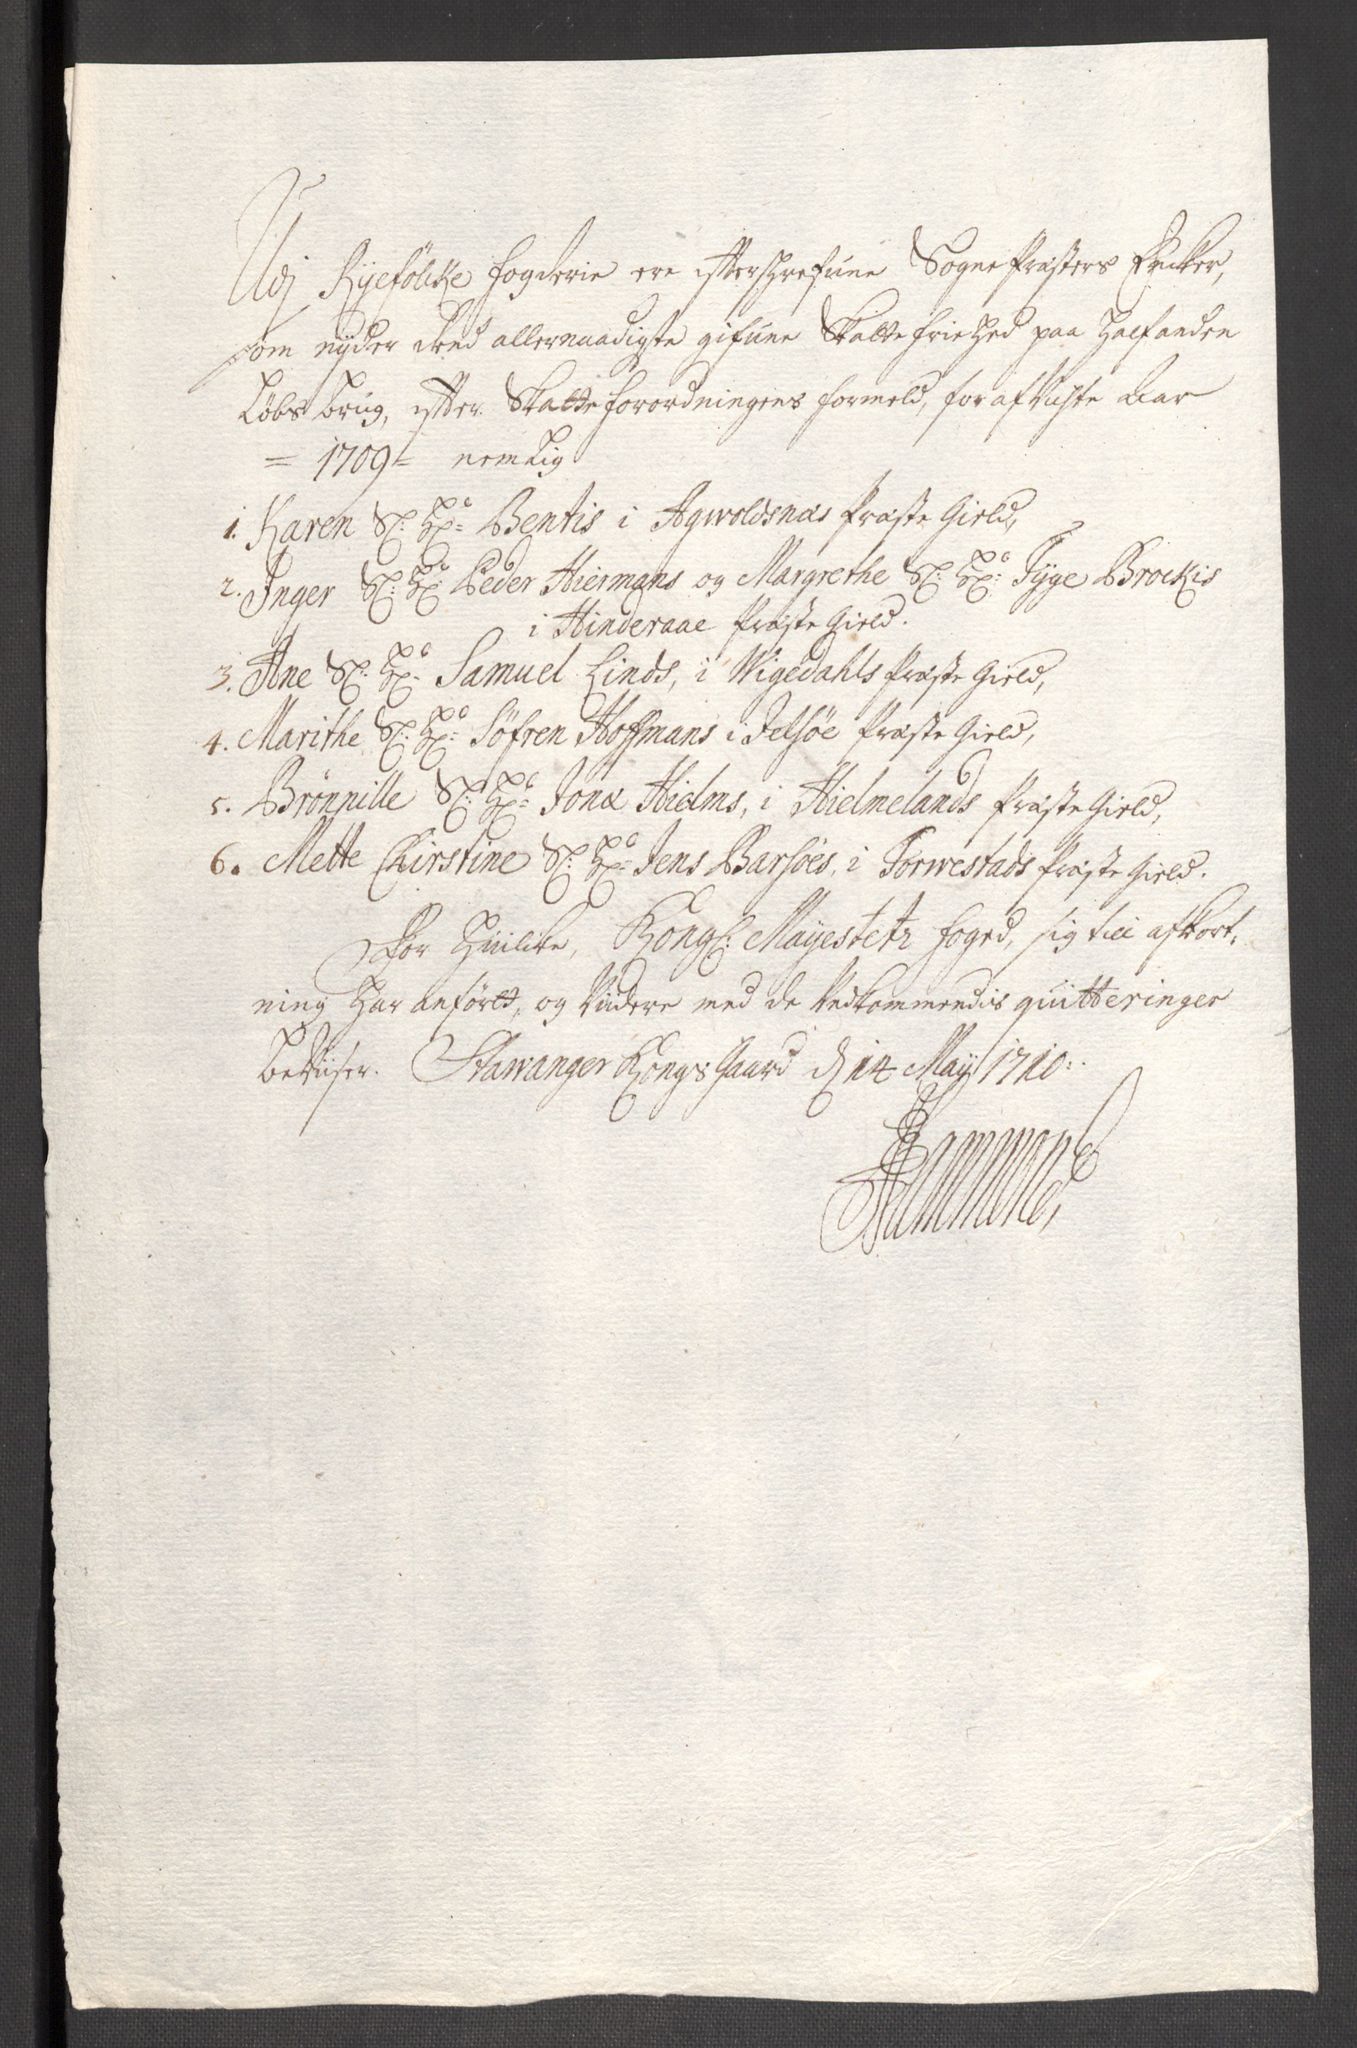 Udj Ryefölcke fogderie ere efterschrefune Sogne Præsters Encker,
som nyder dend allernaadigste gifune Skatte frie hed paa halfanden
Løbs brug, efter Skatte forordningens formeld, for afvichte Aar
= 1709 = nemlig
1. Karen Sl: Hr: Bentis i Agwoldsnæs Præste Gield,
2. Inger Sl: Hr: Peder Hiermans og Margrethe Sl: Hr: Tyge Brockis
i Hinderaae Præste Gield.
3. Ane Sl: Hr: Samuel Linds, i Wigedahls Præste Gield,
4. Marithe Sl: Hr: Söfren Hoffmans i Jelsøe Præste Gield,
5. Brønnille Sl: Hr: Jonæ Hielms, i Hielmelands Præste Gield,
6. Mette Chirstine Sl: Hr: Jens Barsöes, i Torwestads Præste Gield.
For huilcke, Kongl: Mayestetz foged, sig till afkort,
ning har anført, og Viidere med de Vedkommendis quitteringer
beviiser. Stawanger Kongs Gaard d 14 May 1710.